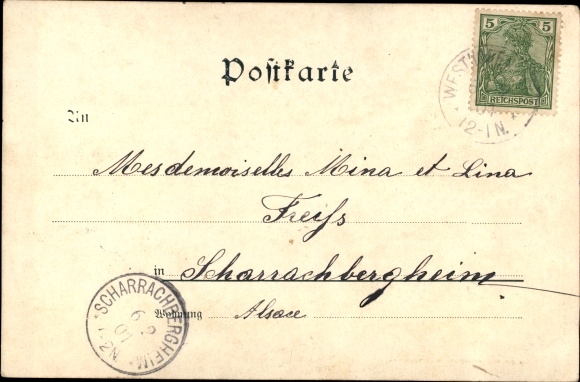 Postkarte
5 5
REICHSPOST
12-1N.
An
Mesdemoiselles Mina et Lina
Freiss
in Scharrachbergheim
Wohnung Alsace
SCHARRACHBERGHEIM